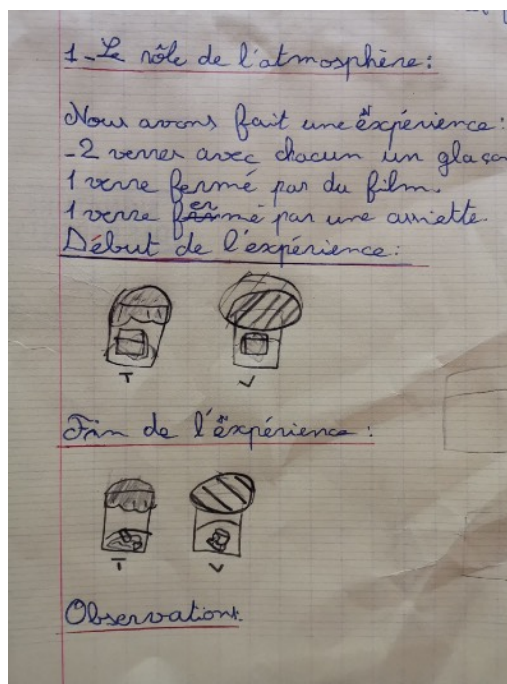 1-Le rôle de l'atmosphère:
Nous avons fait une expérience:
-2 verres avec chacun un glaçon
1 verre fermé par du film.
1 verre fermé par une assiette.
Début de l'expérience:
T V
Fin de l'expérience:
T V
Observations.